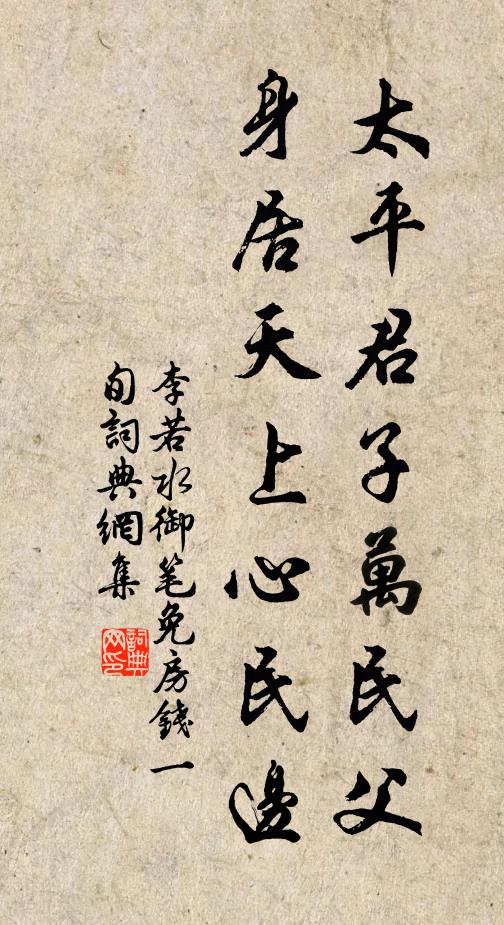 太平君子萬民父
身居天上心民邊
李若水御笔免房錢一
旬詞典網集
詞典网印